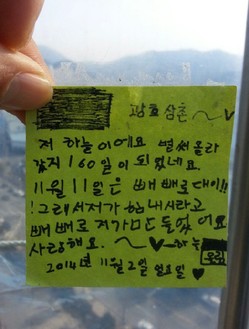 광호 삼촌 ~♡
저 하늘이에요 벌써 올라
갔지 160일이 되었네요.
11월 11일은 빼빼로 데이!!
! 그래서 저가 힘내시라고
빼빼로 저가 만들었어요
사랑해요. ~♡ 하늘
2014년 11월 2일 일요일 ♥